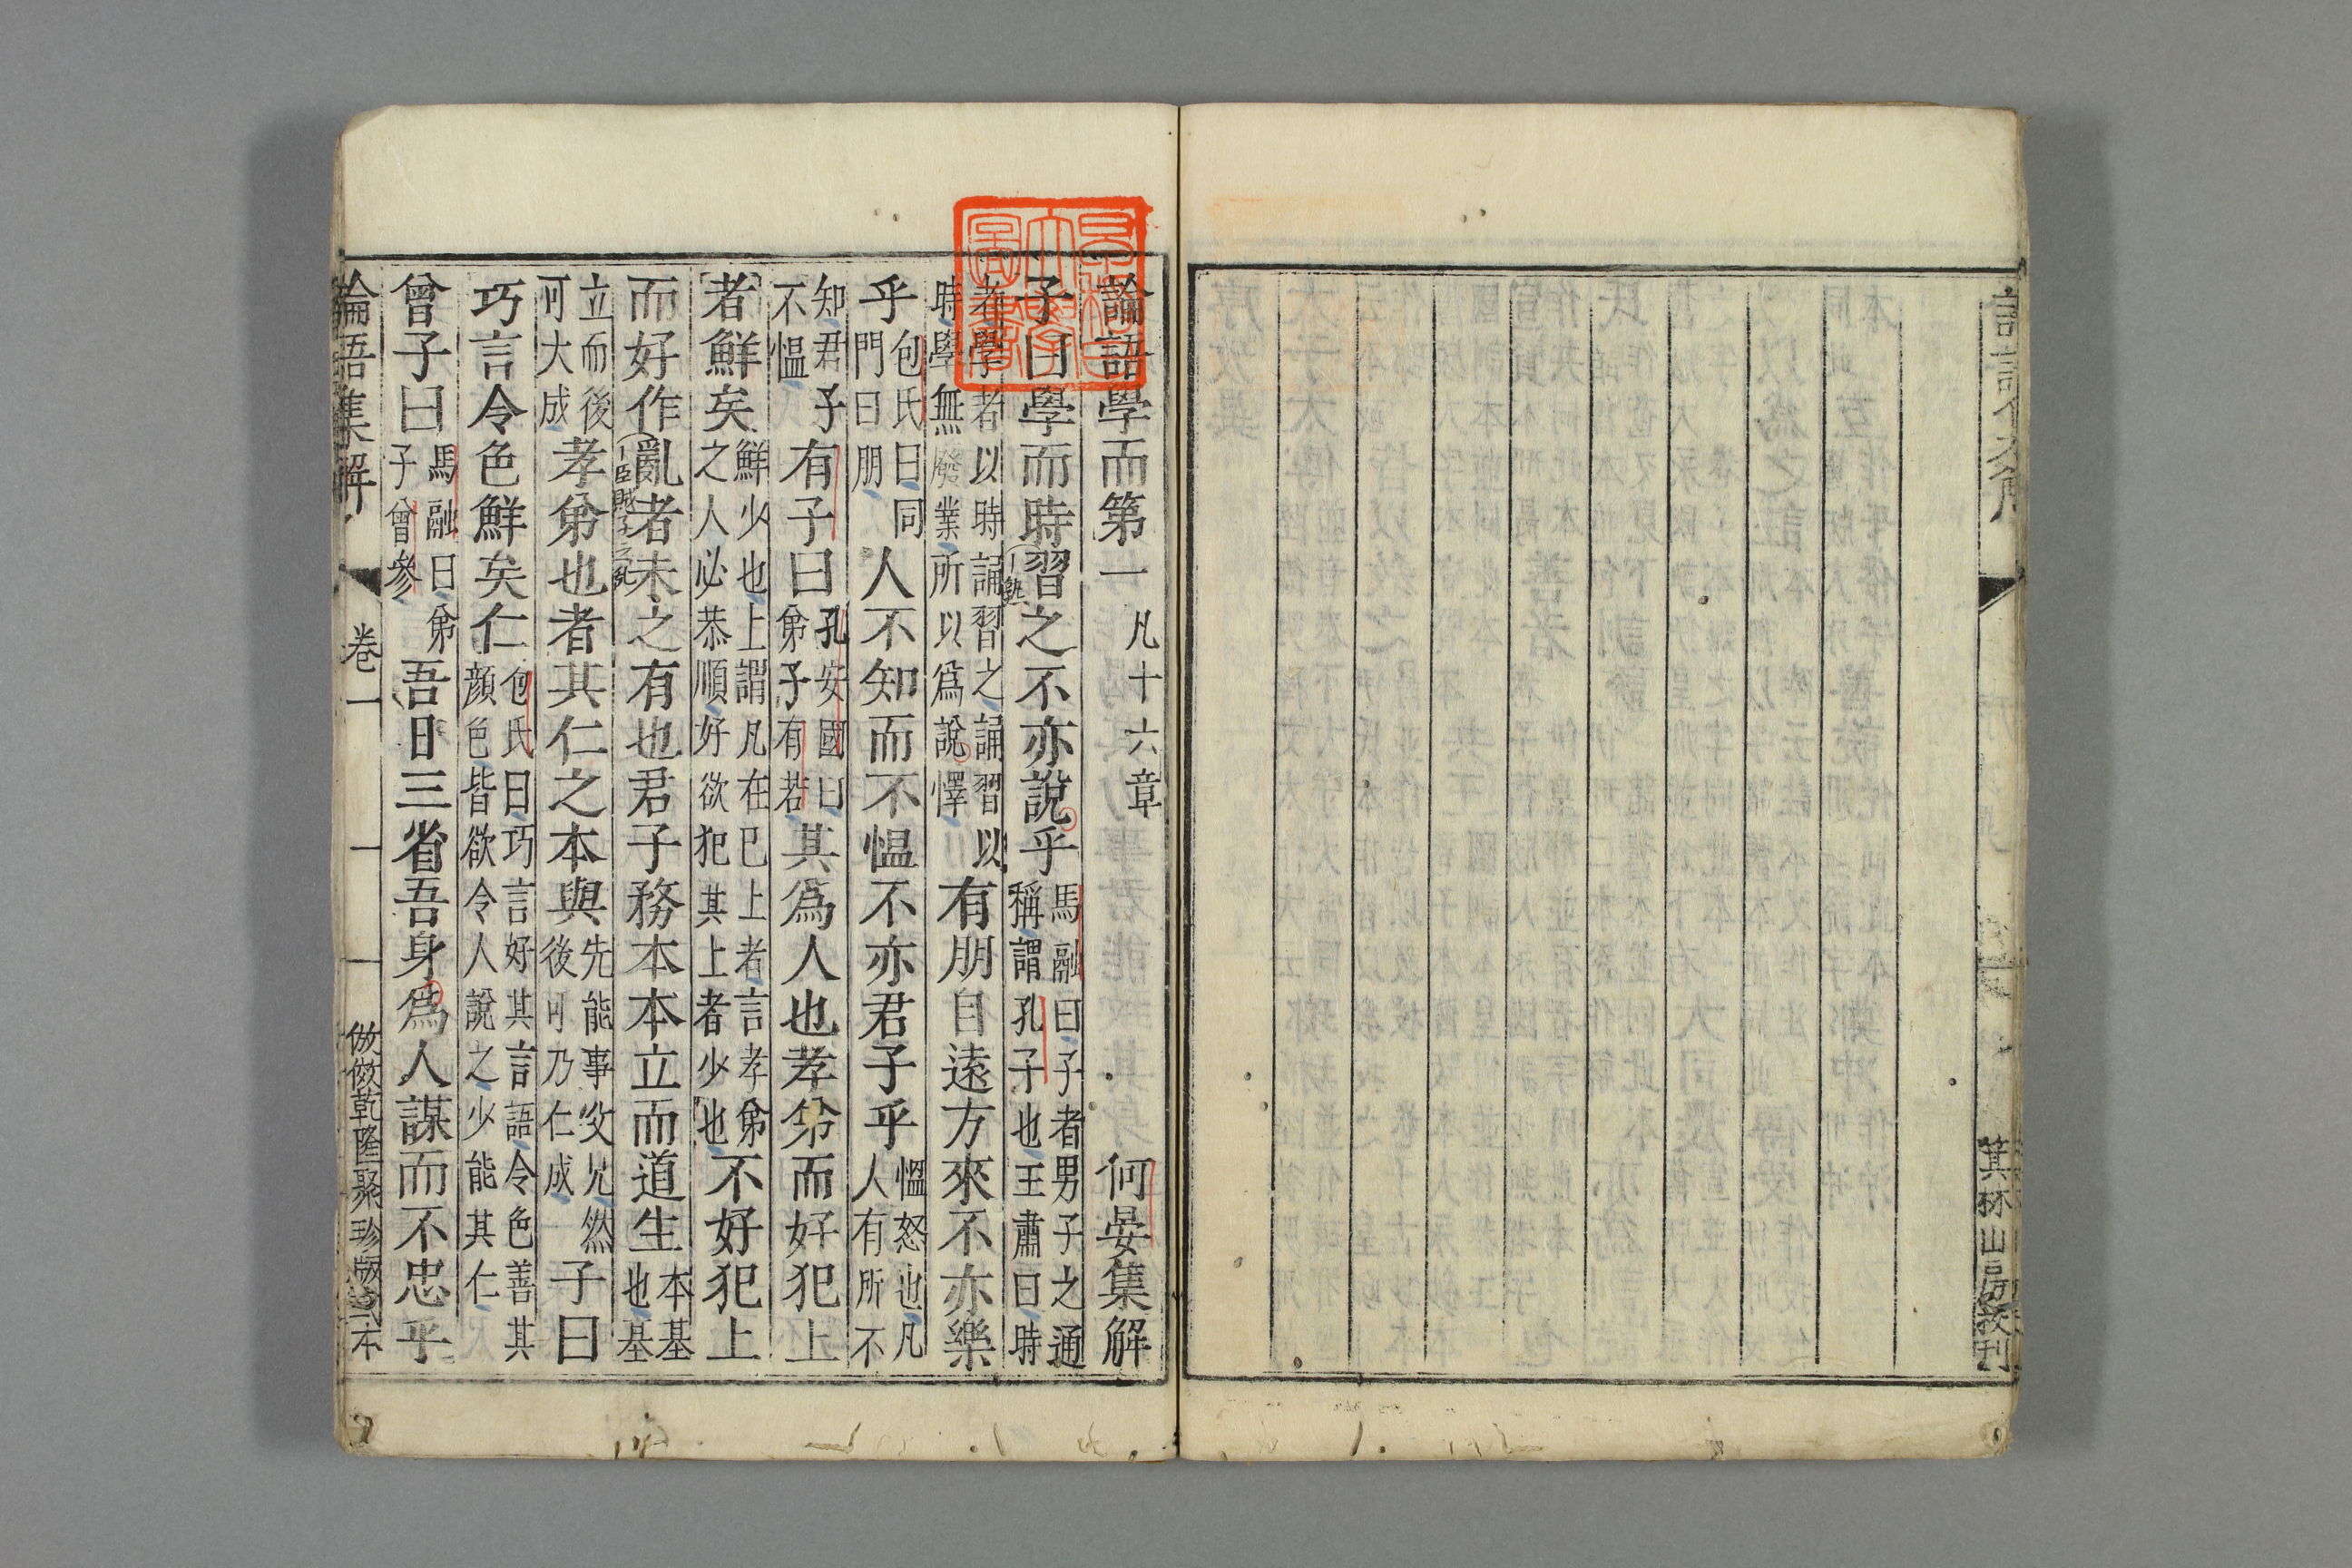 箕林山房
論語學而第一 凡十六章 何晏集解
子曰學而時習之不亦說乎馬融曰子者男子之通稱謂孔子也王肅曰時
者學者以時誦習之誦習以時學無廢業所以爲說懌有朋自遠方來不亦樂
乎包氏曰同門曰朋人不知而不愠不亦君子乎愠怒也凡人有所不
知君子不愠有子曰孔安國曰弟子有若其爲人也孝弟而好犯上
者鮮矣鮮少也上謂凡在已上者言孝弟之人必恭順好欲犯其上者少也不好犯上
而好作亂者未之有也君子務本本立而道生本基也基
立而後可大成孝弟也者其仁之本與先能事父兄然後可乃仁成子曰
巧言令色鮮矣仁包氏曰巧言好其言語令色善其顔色皆欲令人說之少能其仁
曾子曰馬融曰弟子曾參吾日三省吾身爲人謀而不忠乎
論語集解 卷一 一 倣傚乾隆聚珍版式本